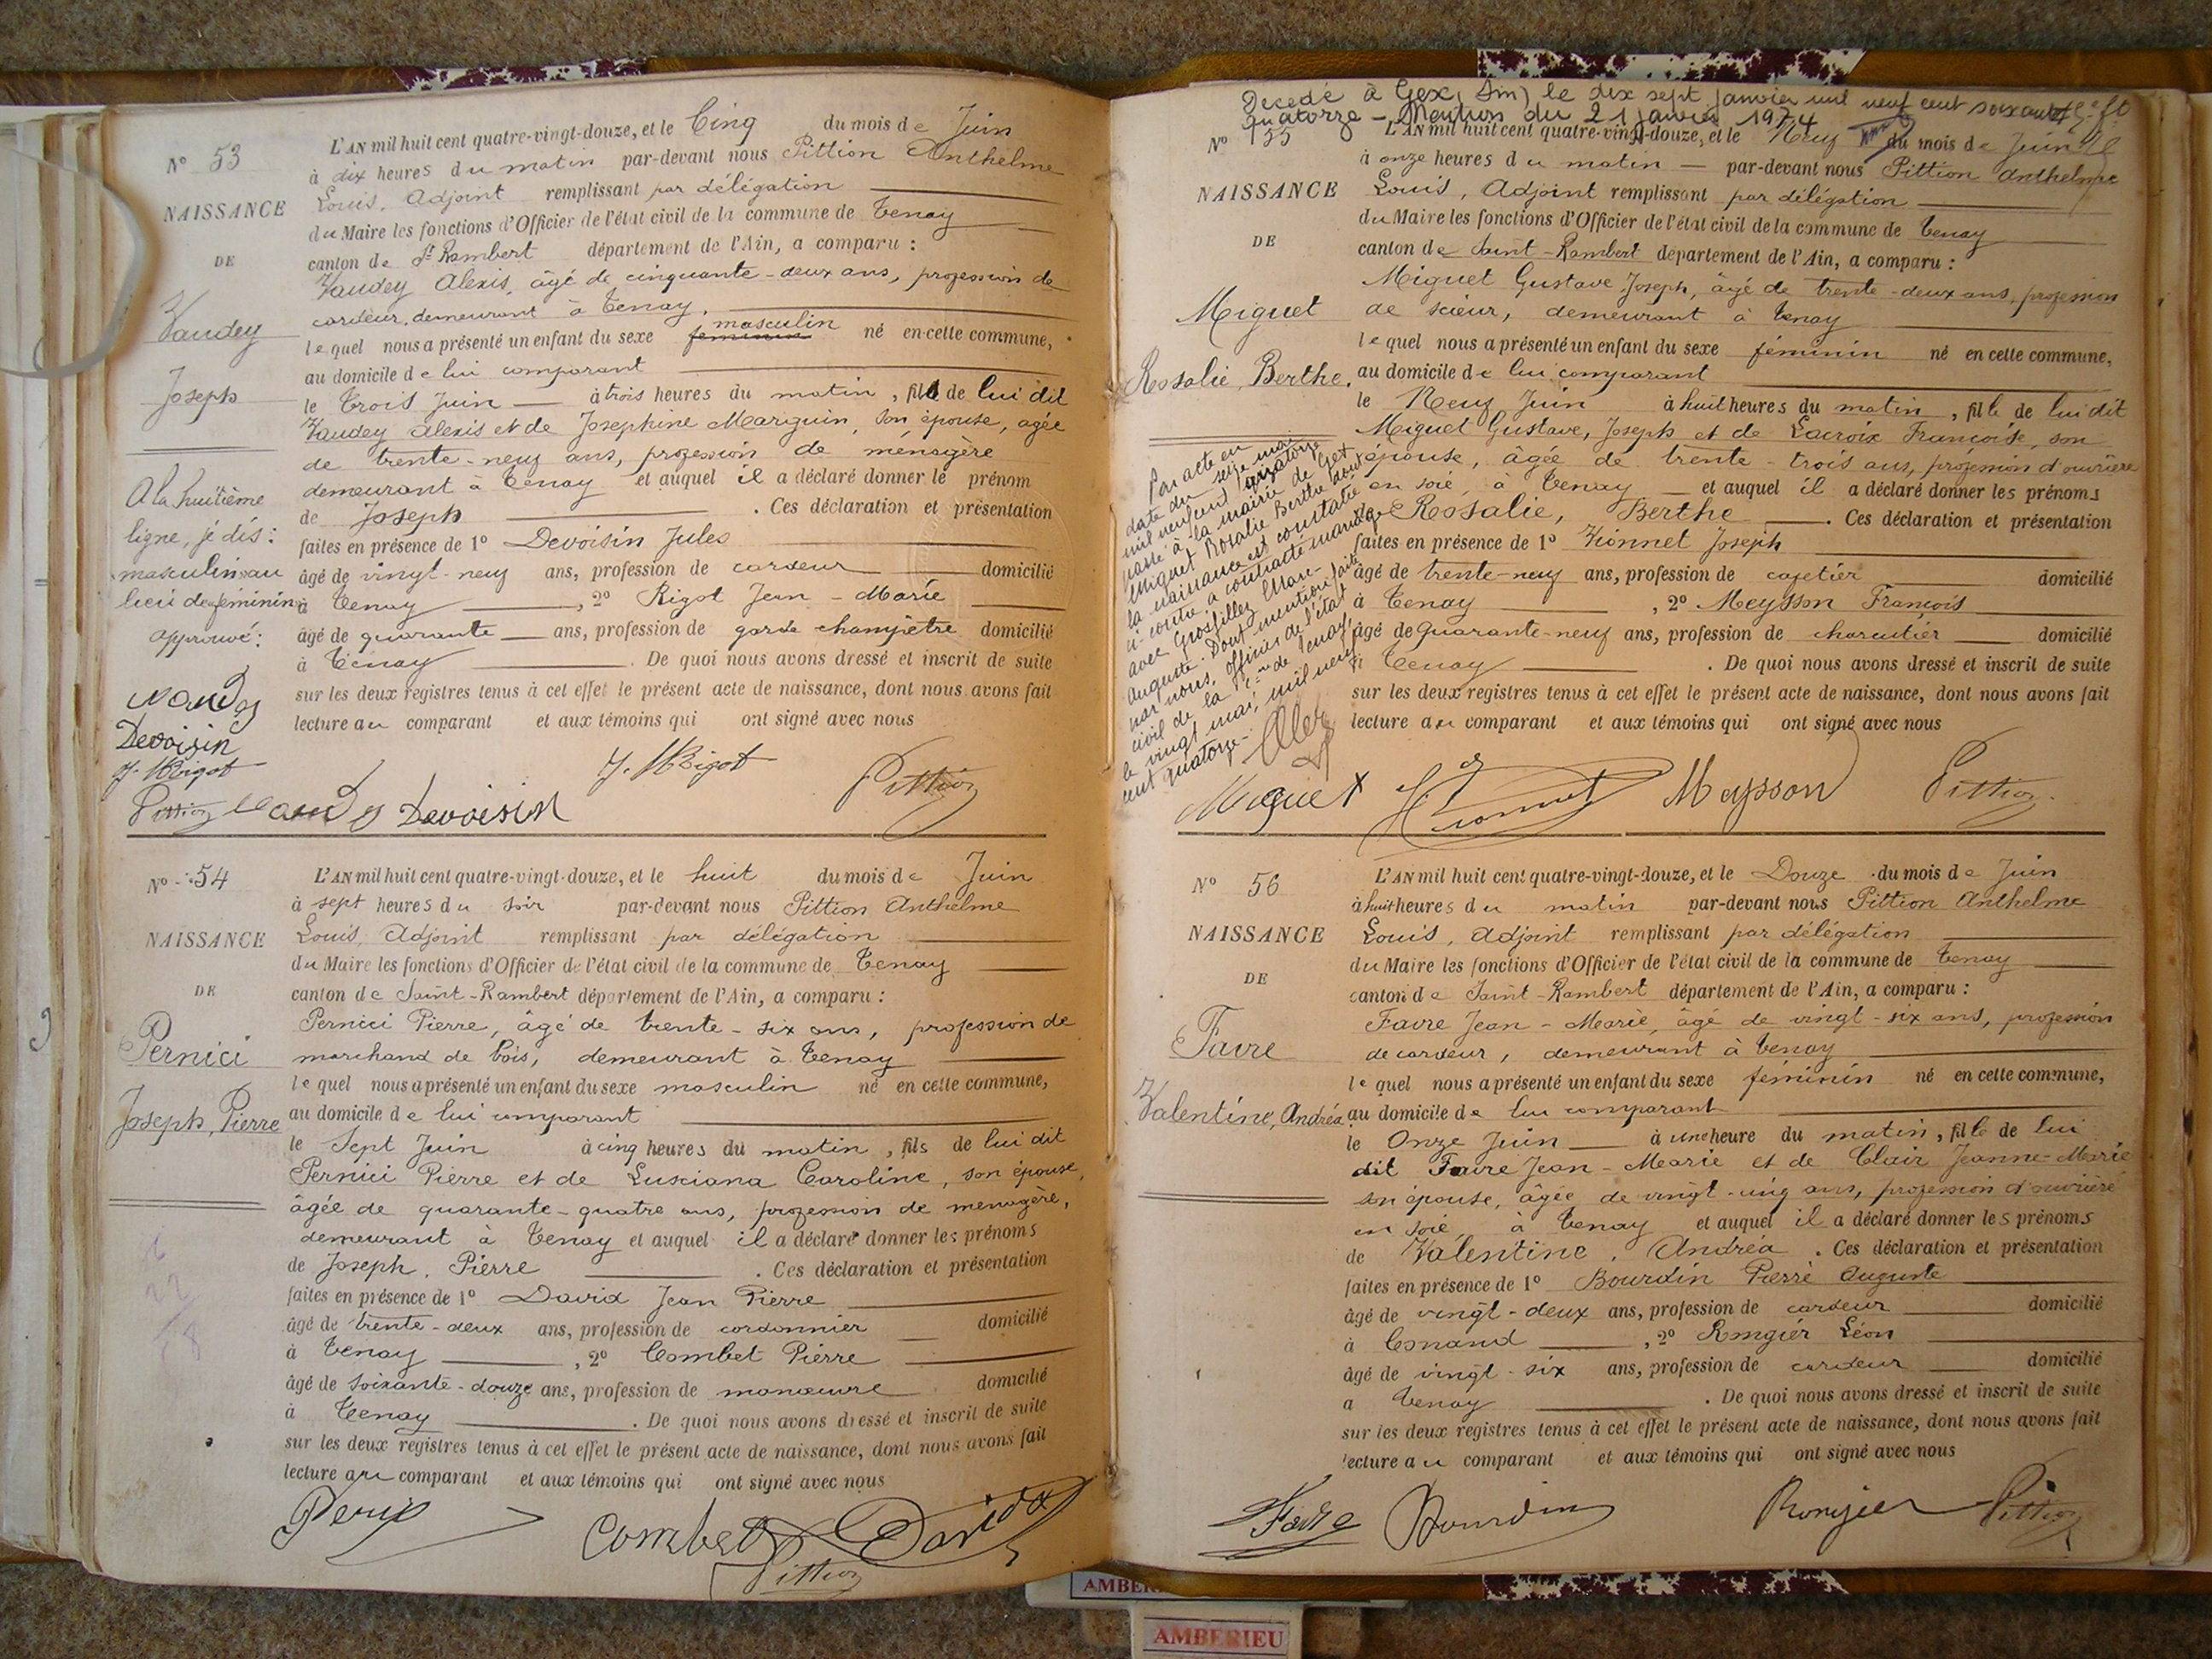 N° 53
NAISSANCE
DE
Vaudey
Joseph
A la huitième
ligne, je dis :
masculin au
lieu de féminin
approuvé :
Devoisin
J. M Rigot
Pittion
L'AN mil huit cent quatre-vingt-douze, et le Cinq du mois de Juin
à dix heures du matin par-devant nous Pittion Anthelme
Louis, Adjoint remplissant par délégation
du Maire les fonctions d'Officier de l'état civil de la commune de Tenay
canton de St Rambert département de l'Ain, a comparu :
Vaudey Alexis, âgé de cinquante-deux ans, profession de
cardeur, demeurant à Tenay,
masculin
lequel nous a présenté un enfant du sexe feminin né en cette commune,
au domicile de lui comparant
le Trois Juin à trois heures du matin, fils de lui dit
Vaudey Alexis et de Josephine Mariguin, son épouse, agée
de trente-neuf ans, profession de ménagère
demeurant à Tenay et auquel il a déclaré donner le prénom
de Joseph . Ces déclaration et présentation
faites en présence de 1° Devoisin Jules
âgé de vingt-neuf ans, profession de cardeur domicilié
à Tenay , 2° Rigot Jean-Marie
âgé de quarante ans, profession de garde champêtre domicilié
à Tenay . De quoi nous avons dressé et inscrit de suite
sur les deux registres tenus à cet effet le présent acte de naissance, dont nous avons fait
lecture au comparant et aux témoins qui ont signé avec nous
J. M Rigot Pittion
Devoisin
N° 54
NAISSANCE
DE
Pernici
Joseph, Pierre
L'AN mil huit cent quatre-vingt-douze, et le huit du mois de Juin
à sept heures du soir par-devant nous Pittion Anthelme
Louis, Adjoint remplissant par délégation
du Maire les fonctions d'Officier de l'état civil de la commune de Tenay
canton de Saint-Rambert département de l'Ain, a comparu :
Pernici Pierre, âgé de trente-six ans, profession de
marchand de bois, demeurant à Tenay
lequel nous a présenté un enfant du sexe masculin né en cette commune,
au domicile de lui comparant
le Sept Juin à cinq heures du matin, fils de lui dit
Pernici Pierre et de Lusciana Caroline, son épouse,
âgée de quarante-quatre ans, profession de menagère,
demeurant à Tenay et auquel il a déclaré donner les prénoms
de Joseph, Pierre . Ces déclaration et présentation
faites en présence de 1° David Jean Pierre
âgé de trente-deux ans, profession de cordonnier domicilié
à Tenay , 2° Combet Pierre
âgé de soixante-douze ans, profession de manœuvre domicilié
à Tenay . De quoi nous avons dressé et inscrit de suite
sur les deux registres tenus à cet effet le présent acte de naissance, dont nous avons fait
lecture au comparant et aux témoins qui ont signé avec nous
Combet David
Pittion
Décédé à Gex (Ain) le dix sept janvier mil neuf cent soixante
quatorze - Mention du 21 janvier 1974
N° 55
NAISSANCE
DE
Miguet
Rosalie, Berthe.
Par acte en
date du seize mai
mil neuf cent quatorze
passé à la mairie de Gex
Miguet Rosalie Berthe dont
la naissance est constatée
ci-contre a contracté mariage
avec Grosfillez Marc-
Auguste. Dont mention faite
par nous, officier de l'état
civil de la Cne de Tenay,
le vingt mai, mil neuf
cent quatorze.
L'AN mil huit cent quatre-vingt-douze, et le Neuf du mois de Juin
à onze heures du matin par-devant nous Pittion Anthelme
Louis, Adjoint remplissant par délégation
du Maire les fonctions d'Officier de l'état civil de la commune de Tenay
canton de Saint-Rambert département de l'Ain, a comparu :
Miguet Gustave Joseph, âgé de trente-deux ans, profession
de scieur, demeurant à Tenay
lequel nous a présenté un enfant du sexe féminin né en cette commune,
au domicile de lui comparant
le Neuf Juin à huit heures du matin, fille de lui dit
Miguet Gustave, Joseph et de Lacroix Francoise, son
épouse, âgée de trente-trois ans, profession d'ouvrière
en soie, à Tenay et auquel il a déclaré donner les prénoms
de Rosalie, Berthe . Ces déclaration et présentation
faites en présence de 1° Vionnet Joseph
âgé de trente-neuf ans, profession de cafetier domicilié
à Tenay , 2° Meysson Francois
âgé de Quarante-neuf ans, profession de charcutier domicilié
à Tenay . De quoi nous avons dressé et inscrit de suite
sur les deux registres tenus à cet effet le présent acte de naissance, dont nous avons fait
lecture au comparant et aux témoins qui ont signé avec nous
Miguet Meysson Pittion
N° 56
NAISSANCE
DE
Favre
Valentine, Andréa
L'AN mil huit cent quatre-vingt-douze, et le Douze du mois de Juin
à huit heures du matin par-devant nous Pittion Anthelme
Louis, Adjoint remplissant par délégation
du Maire les fonctions d'Officier de l'état civil de la commune de Tenay
canton de Saint-Rambert département de l'Ain, a comparu :
Favre Jean-Marie, âgé de vingt-six ans, profession
de cardeur, demeurant à Tenay
lequel nous a présenté un enfant du sexe féminin né en cette commune,
au domicile de lui comparant
le Onze Juin à une heure du matin, fille de lui
dit Favre Jean-Marie et de Clair Jeanne-Marie
son épouse, âgée de vingt-cinq ans, profession d'ouvrière
en soie, à Tenay et auquel il a déclaré donner les prénoms
de Valentine, Andréa . Ces déclaration et présentation
faites en présence de 1° Bourdin Pierre Auguste
âgé de vingt-deux ans, profession de cardeur domicilié
à Conand , 2° Rongier Léon
âgé de vingt-six ans, profession de cardeur domicilié
a Tenay . De quoi nous avons dressé et inscrit de suite
sur les deux registres tenus à cet effet le présent acte de naissance, dont nous avons fait
lecture au comparant et aux témoins qui ont signé avec nous
Favre Bourdin Rongier Pittion
AMBERIEU